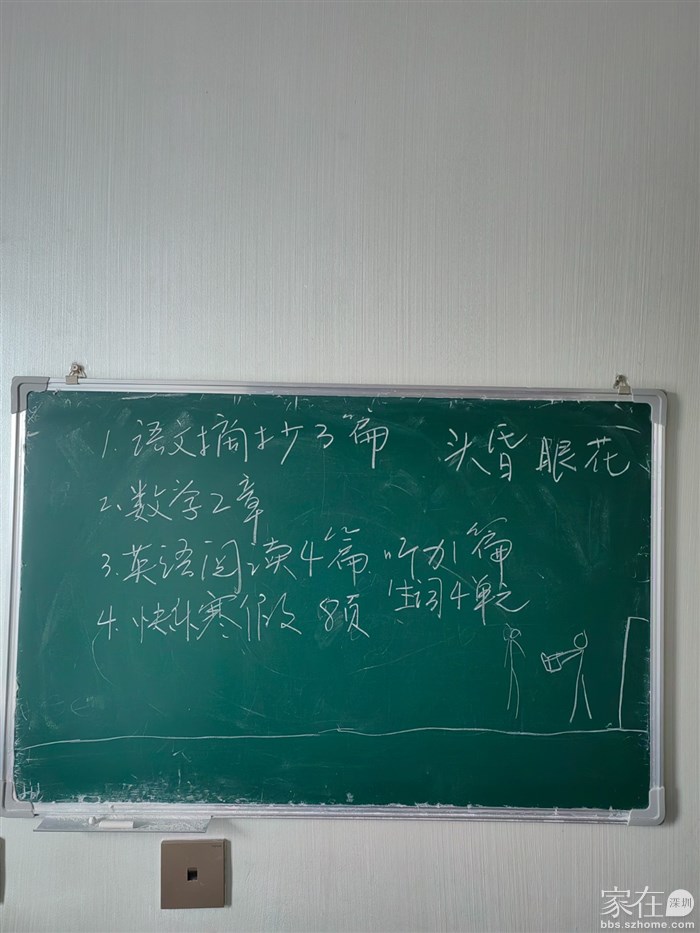 1. 语文摘抄3篇 头昏眼花
2. 数学2章
3. 英语阅读4篇 听力1篇
生词4单元
4. 快乐寒假 8页
家在深圳
bbs.szhome.com